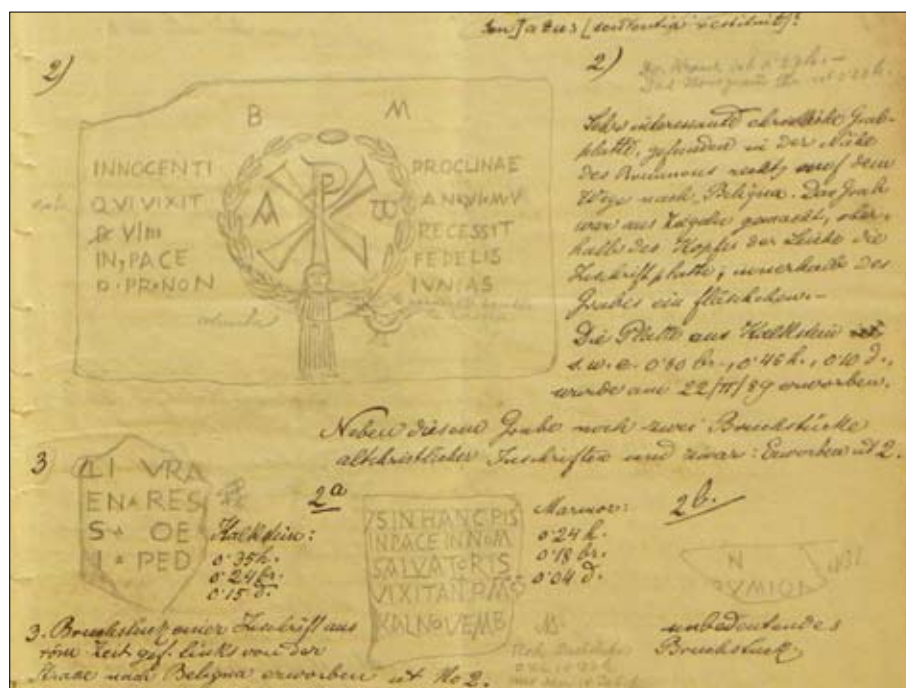 2)
B M
INNOCENTI PROCLINAE
QVI VIXIT
VIIII RECESSIT
IN PACE FEDELIS
D · PR · NON IVNIAS
columba
2)
Sehr interessante christliche Grab-
platte, gefunden in der Nähe
des Rommons rechts auf dem
Wege nach Beligna. Das Grab
war aus Ziegeln gemacht, ober-
halb des Kopfes der Leiche die
Inschriftplatte, innerhalb des
Grabes ein fläschchen.–
Die Platte aus Kalkstein
s.w.a. 0·80 br., 0·46 h., 0·10 d.,
wurde am 22/VI/89 erworben.
Neben diesem Grabe noch zwei Bruchstücke
altchristlicher Inschriften und zwar: Erworben ut 2.
3
LI VRA
EN RES
S OE
I PED
2a
Kalkstein:
0·35 h.
0·24 br.
0·15 d.
SIN HANC PIS
IN PACE IN NOM
SALVATORIS
VIXIT AN P M S
KAL NOVEMB
Marmor:
0·24 h.
0·18 br.
0·04 d.
2b.
N
unbedeutendes
Bruchstück
3. Bruchstück einer Inschrift aus
röm. Zeit gef. links von der
Strasse nach Beligna erworben ut No 2.